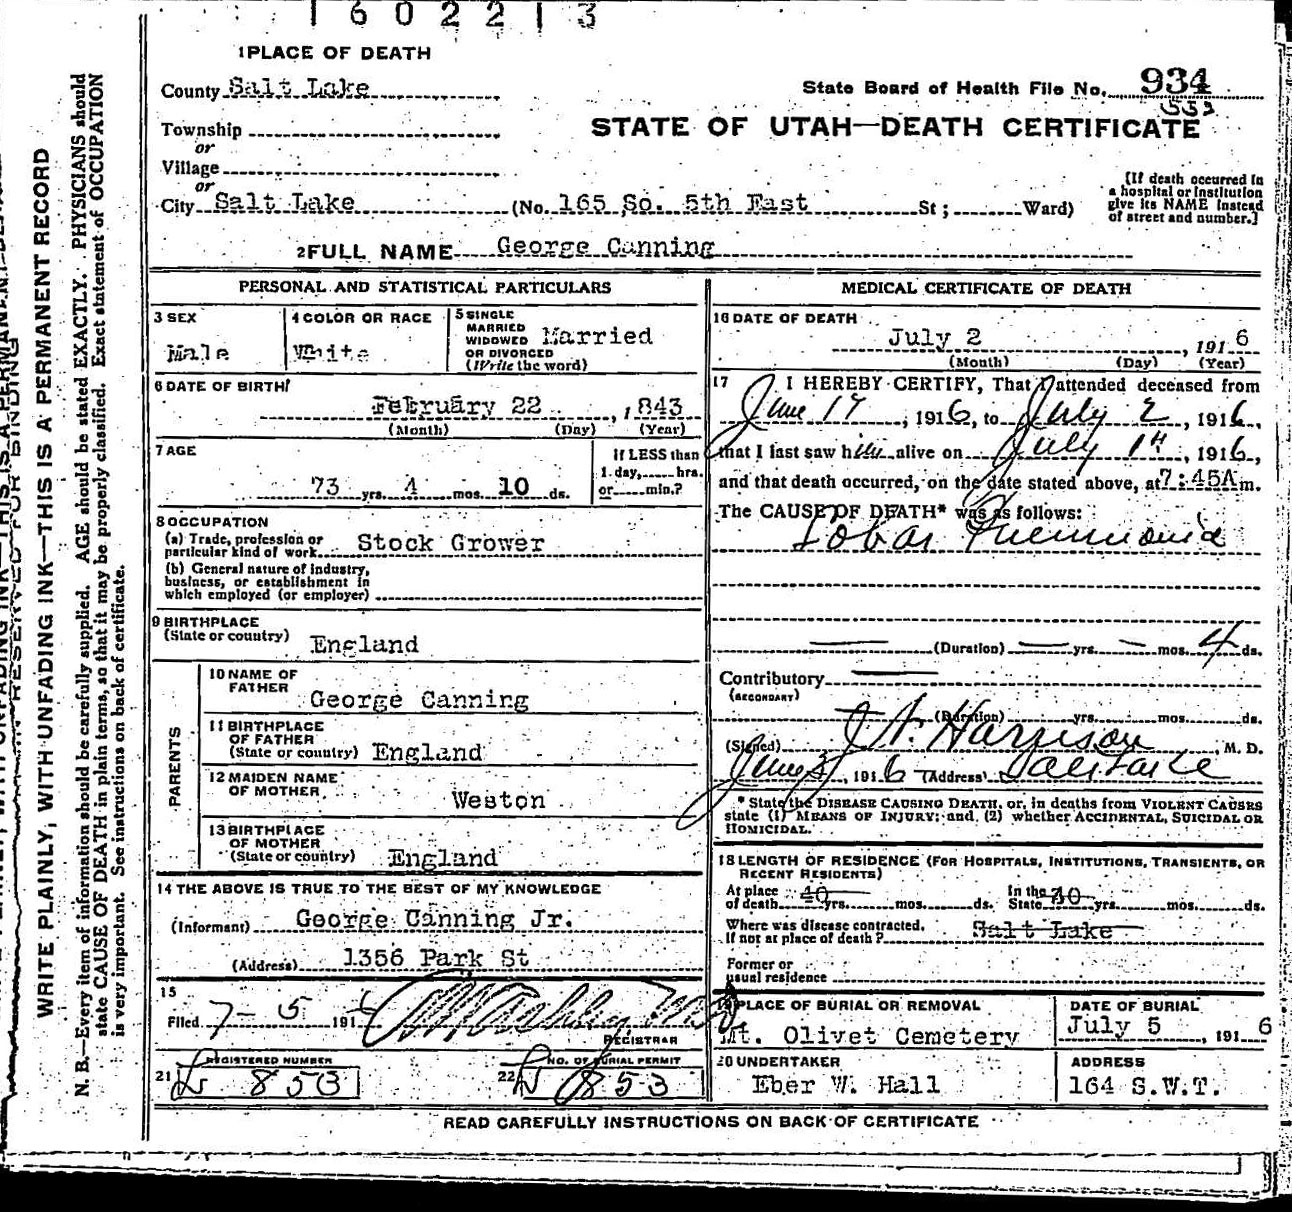 1 6 0 2 2 1 3
1 PLACE OF DEATH
County Salt Lake
State Board of Health File No. 934
553
Township
or
STATE OF UTAH—DEATH CERTIFICATE
Village
or
City Salt Lake (No. 165 So. 5th East St; Ward)
(If death occurred in
a hospital or institution
give its NAME instead
of street and number.]
2 FULL NAME George Canning
PERSONAL AND STATISTICAL PARTICULARS
3 SEX
Male
4 COLOR OR RACE
White
5 SINGLE
MARRIED
WIDOWED
OR DIVORCED
(Write the word)
Married
6 DATE OF BIRTH
February 22, 1843
(Month) (Day) (Year)
7 AGE
73 yrs. 4 mos. 10 ds.
If LESS than
1 day, hrs.
or min.?
8 OCCUPATION
(a) Trade, profession or
particular kind of work Stock Grower
(b) General nature of industry,
business, or establishment in
which employed (or employer)
9 BIRTHPLACE
(State or country) England
PARENTS
10 NAME OF
FATHER George Canning
11 BIRTHPLACE
OF FATHER
(State or country) England
12 MAIDEN NAME
OF MOTHER Weston
13 BIRTHPLACE
OF MOTHER
(State or country) England
14 THE ABOVE IS TRUE TO THE BEST OF MY KNOWLEDGE
(Informant) George Canning Jr.
(Address) 1356 Park St
15
Filed 7-5 191
REGISTRAR
REGISTERED NUMBER
21 L 853
NO. OF BURIAL PERMIT
22 853
MEDICAL CERTIFICATE OF DEATH
16 DATE OF DEATH
July 2, 1916
(Month) (Day) (Year)
17 I HEREBY CERTIFY, That I attended deceased from
June 17, 1916, to July 2, 1916,
that I last saw him alive on July 1st, 1916,
and that death occurred, on the date stated above, at 7:45A m.
The CAUSE OF DEATH* was as follows:
Lobar Pneumonia
(Duration) yrs. mos. 4 ds.
Contributory
(SECONDARY)
(Duration) yrs. mos. ds.
(Signed) Harrison, M. D.
, 1916 (Address) Salt Lake
* State the DISEASE CAUSING DEATH, or, in deaths from VIOLENT CAUSES
state (1) MEANS OF INJURY; and (2) whether ACCIDENTAL, SUICIDAL OR
HOMICIDAL.
18 LENGTH OF RESIDENCE (FOR HOSPITALS, INSTITUTIONS, TRANSIENTS, OR
RECENT RESIDENTS)
At place
of death 40 yrs. mos. ds.
In the
State 40 yrs. mos. ds.
Where was disease contracted,
If not at place of death? Salt Lake
Former or
usual residence
19 PLACE OF BURIAL OR REMOVAL
Mt. Olivet Cemetery
DATE OF BURIAL
July 5, 1916
20 UNDERTAKER
Eber W. Hall
ADDRESS
164 S.W.T.
READ CAREFULLY INSTRUCTIONS ON BACK OF CERTIFICATE
RESERVED FOR BINDING
WRITE PLAINLY, WITH UNFADING INK—THIS IS A PERMANENT RECORD
N. B.—Every item of information should be carefully supplied. AGE should be stated EXACTLY. PHYSICIANS should
state CAUSE OF DEATH in plain terms, so that it may be properly classified. Exact statement of OCCUPATION
is very important. See instructions on back of certificate.